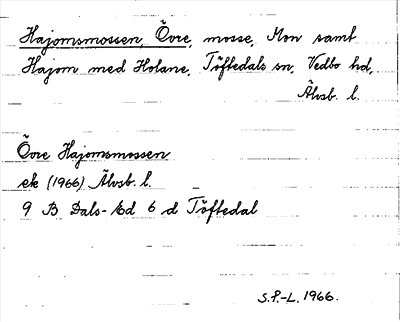 Hajomsmossen, Övre, mosse, Mon samt
Hajom med Holane, Töftedals sn, Vedbo hd,
Älvsb. l.
Övre Hajomsmossen
ek (1966) Älvsb. l.
9 B Dals-Ed 6 d Töftedal
S.P.-L. 1966.